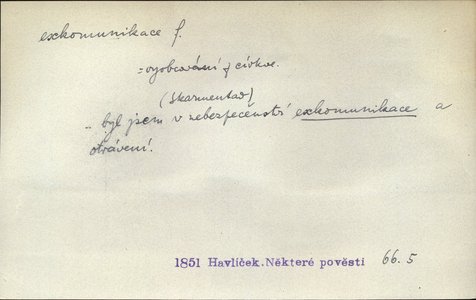 exkomunikace f.
= vyobcování z církve.
(Skarmentad)
.. byl jsem v nebezpečenství exkomunikace a
otrávení.
1851 Havlíček.Některé pověsti 66. 5